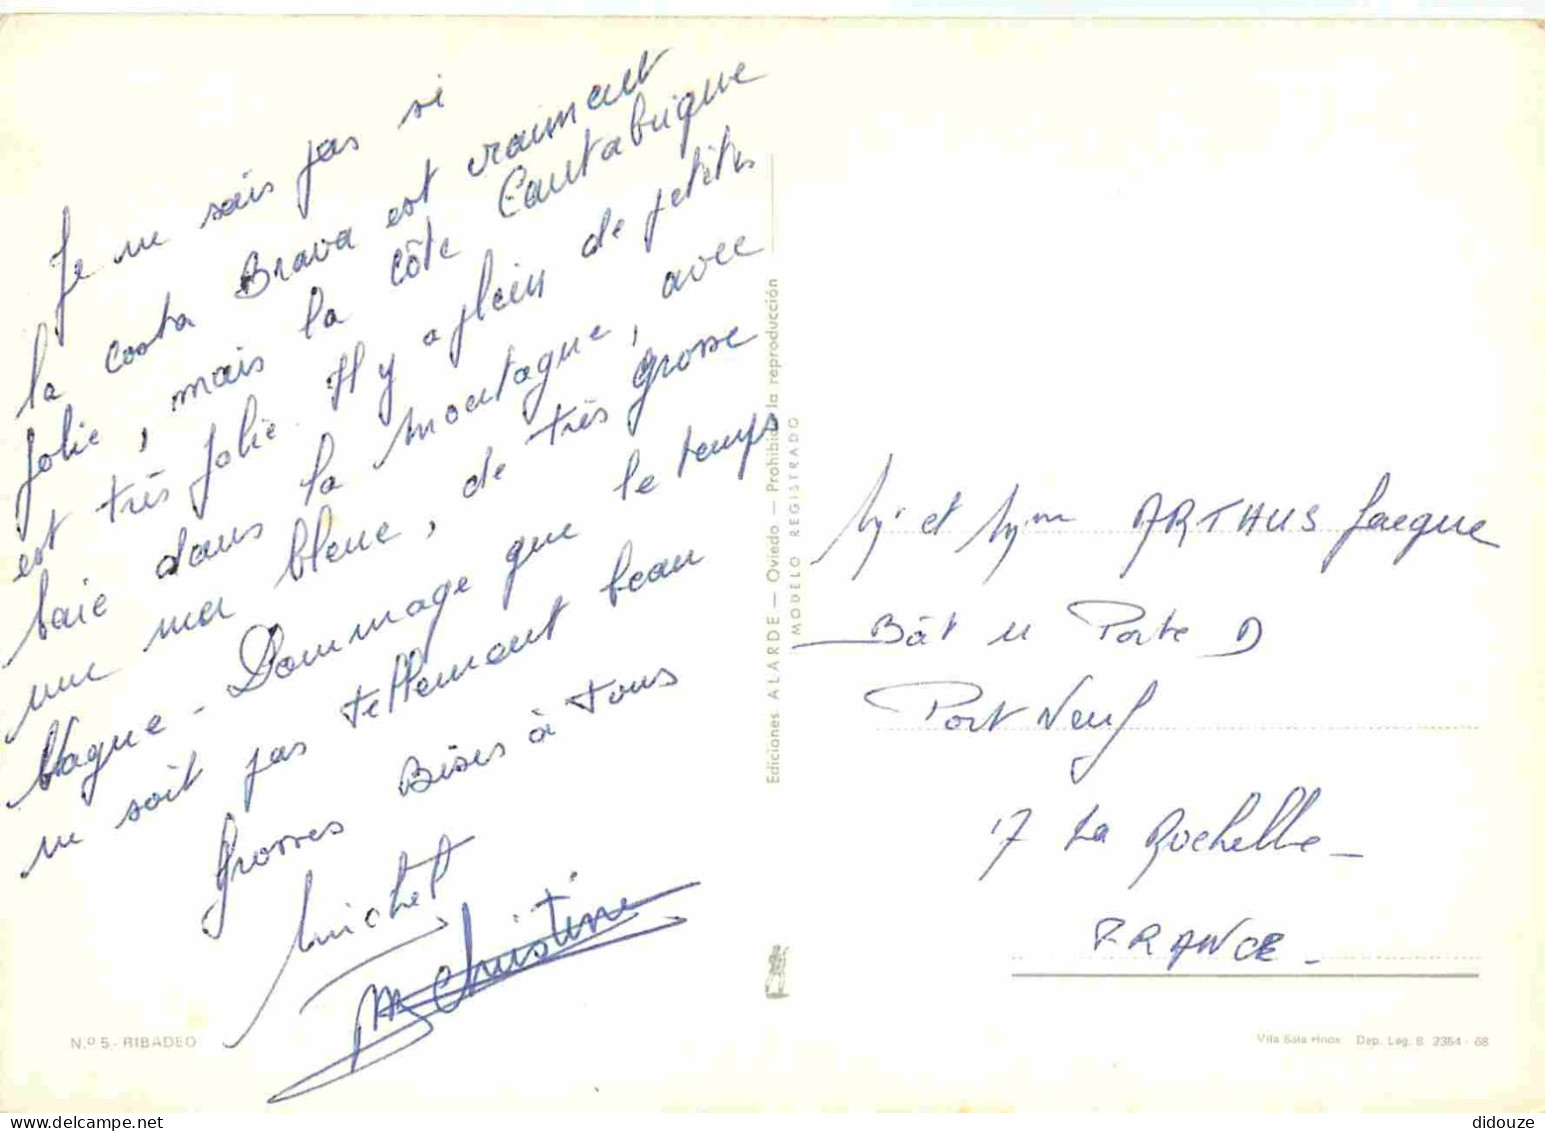 Je ne sais pas si
la costa Brava est vraiment
jolie, mais la côte Cantabrique
est très jolie. Il y a plein de petites
baie dans la montagne, avec
une mer bleue, de très grosse
Vague - Dommage que le temps
ne soit pas tellement beau
Grosses Bises à tous
Michel
M Christine
N.º 5.- RIBADEO
Ediciones ALARDE — Oviedo — Prohibida la reproducción
MODELO REGISTRADO
Mr et Mme ARTHUS Jacque
Bât 11 Porte D
Port Neuf
17 La Rochelle -
FRANCE -
Dep. Leg. B. 2354 - 68
didouze